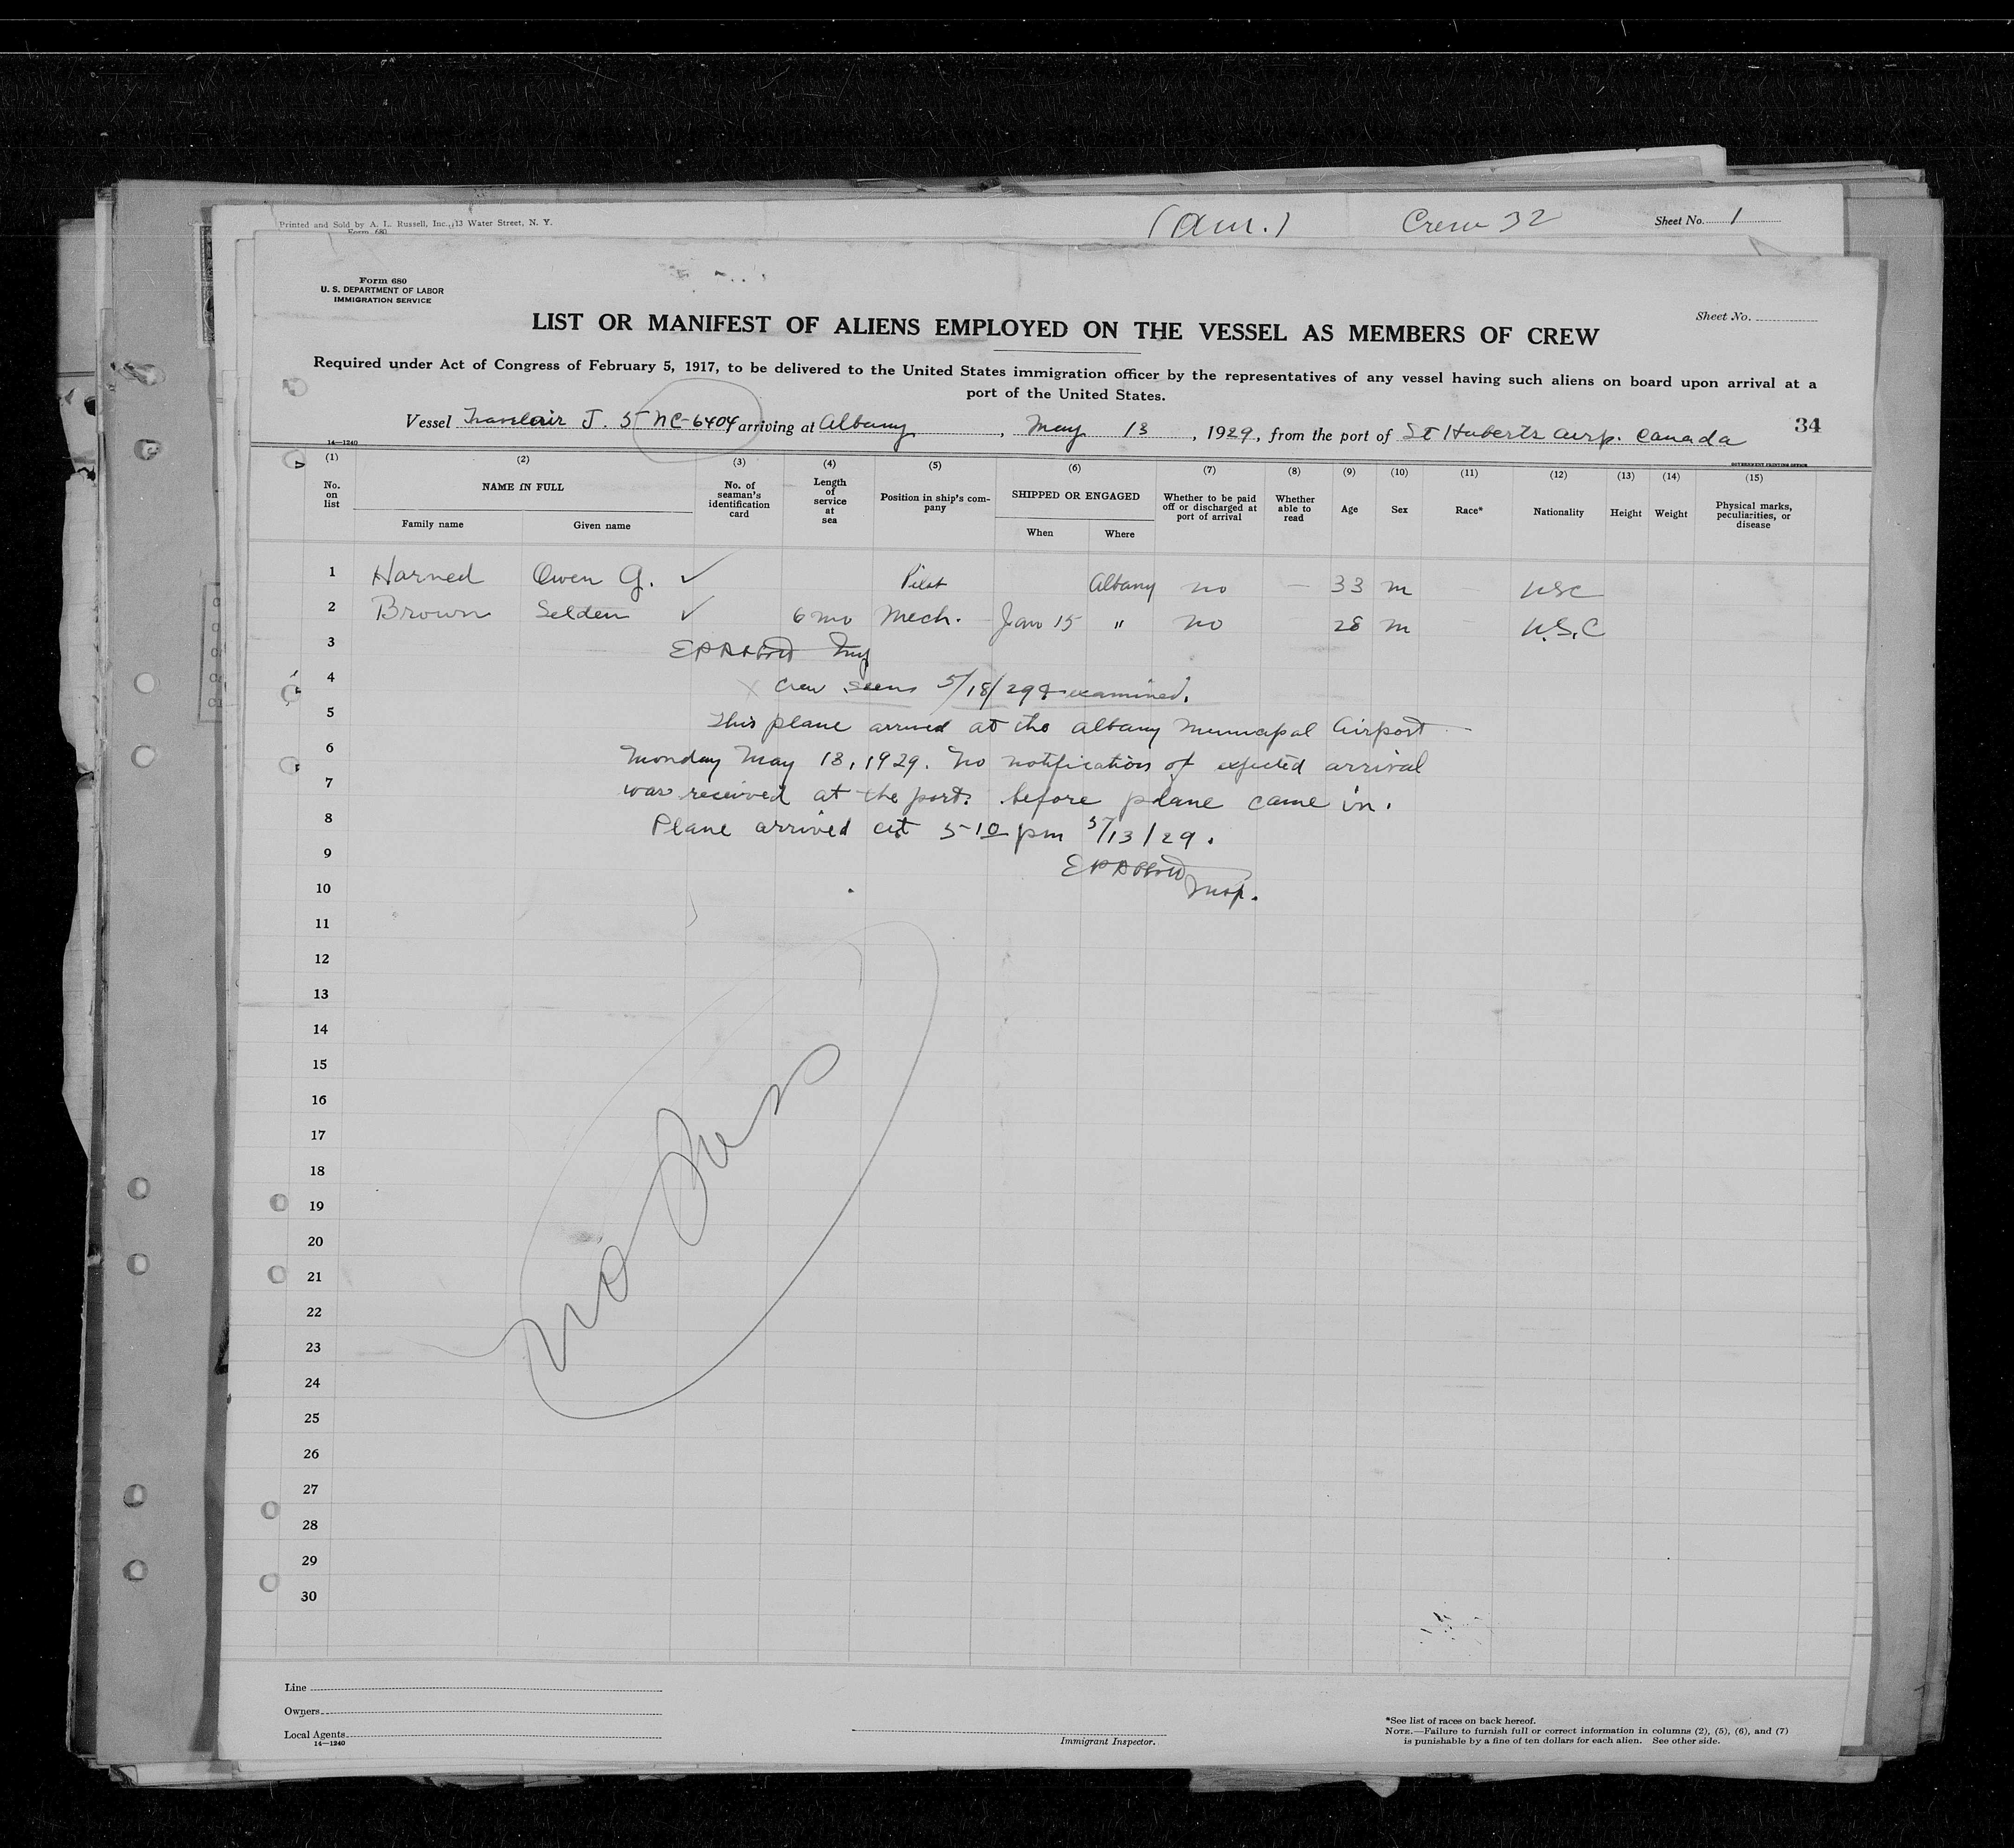 Printed and Sold by A. L. Russell, Inc., 13 Water Street, N. Y.
Form 680
(Am.) Crew 32 Sheet No. 1
Form 680
U. S. DEPARTMENT OF LABOR
IMMIGRATION SERVICE
Sheet No.
LIST OR MANIFEST OF ALIENS EMPLOYED ON THE VESSEL AS MEMBERS OF CREW
Required under Act of Congress of February 5, 1917, to be delivered to the United States immigration officer by the representatives of any vessel having such aliens on board upon arrival at a
port of the United States.
Vessel Travelair J. 5 NC-6404 arriving at Albany, May 13, 1929, from the port of St Huberts airp. Canada
34
14—1240
GOVERNMENT PRINTING OFFICE
(1) (2) (3) (4) (5) (6) (7) (8) (9) (10) (11) (12) (13) (14) (15)
No. on list
NAME IN FULL
Family name Given name
No. of seaman's identification card
Length of service at sea
Position in ship's company
SHIPPED OR ENGAGED
When Where
Whether to be paid off or discharged at port of arrival
Whether able to read
Age
Sex
Race*
Nationality
Height
Weight
Physical marks, peculiarities, or disease
1 Harned Owen G. ✓ Pilot Albany no — 33 m — USC
2 Brown Selden ✓ 6 mo Mech. Jan 15 " no 28 m — U.S.C
3
4 x Crew seen 5/18/29 & examined.
5 This plane arrived at the Albany Municipal Airport
6 Monday May 13, 1929. No notification of expected arrival
7 was received at the port. before plane came in.
8 Plane arrived at 5-10 pm 5/13/29.
9
10 Insp.
11
12
13
14
15
16
17
18
19
20
21
22
23
24
25
26
27
28
29
30
no
Line
Owners
Local Agents
14—1240
Immigrant Inspector.
*See list of races on back hereof.
NOTE.—Failure to furnish full or correct information in columns (2), (5), (6), and (7)
is punishable by a fine of ten dollars for each alien. See other side.